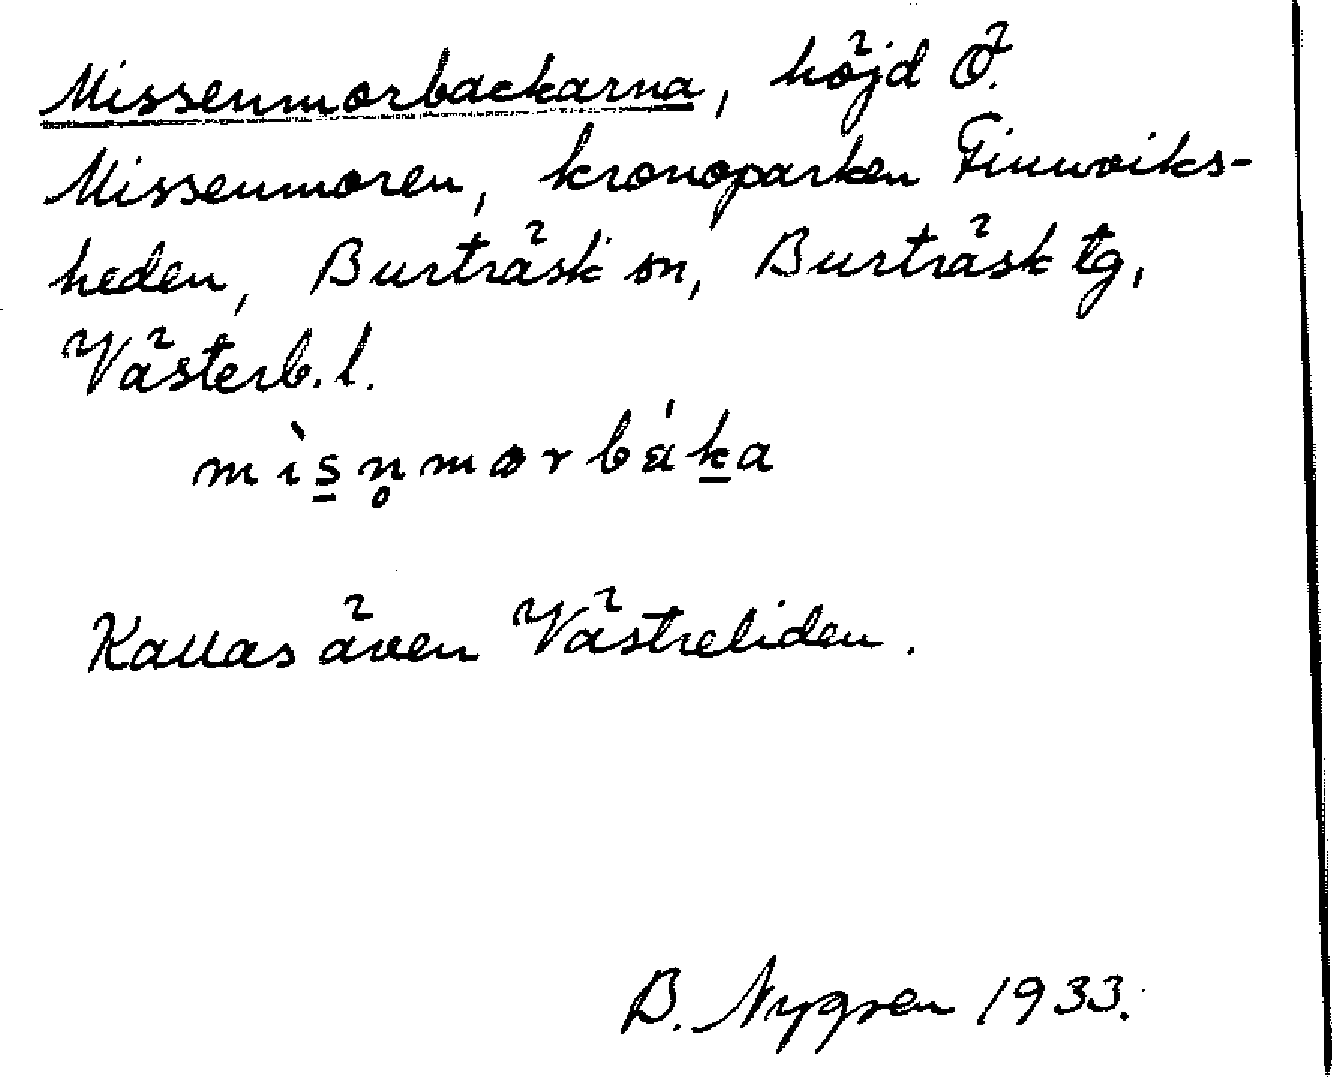 Missenmorbackarna, höjd Ö.
Missenmoren, kronoparken Finnviks-
heden, Burträsk sn, Burträsk tg,
Västerb. l.
mìs̲n̥morbák̲a
Kallas även Västreliden.
B. Nygren 1933.